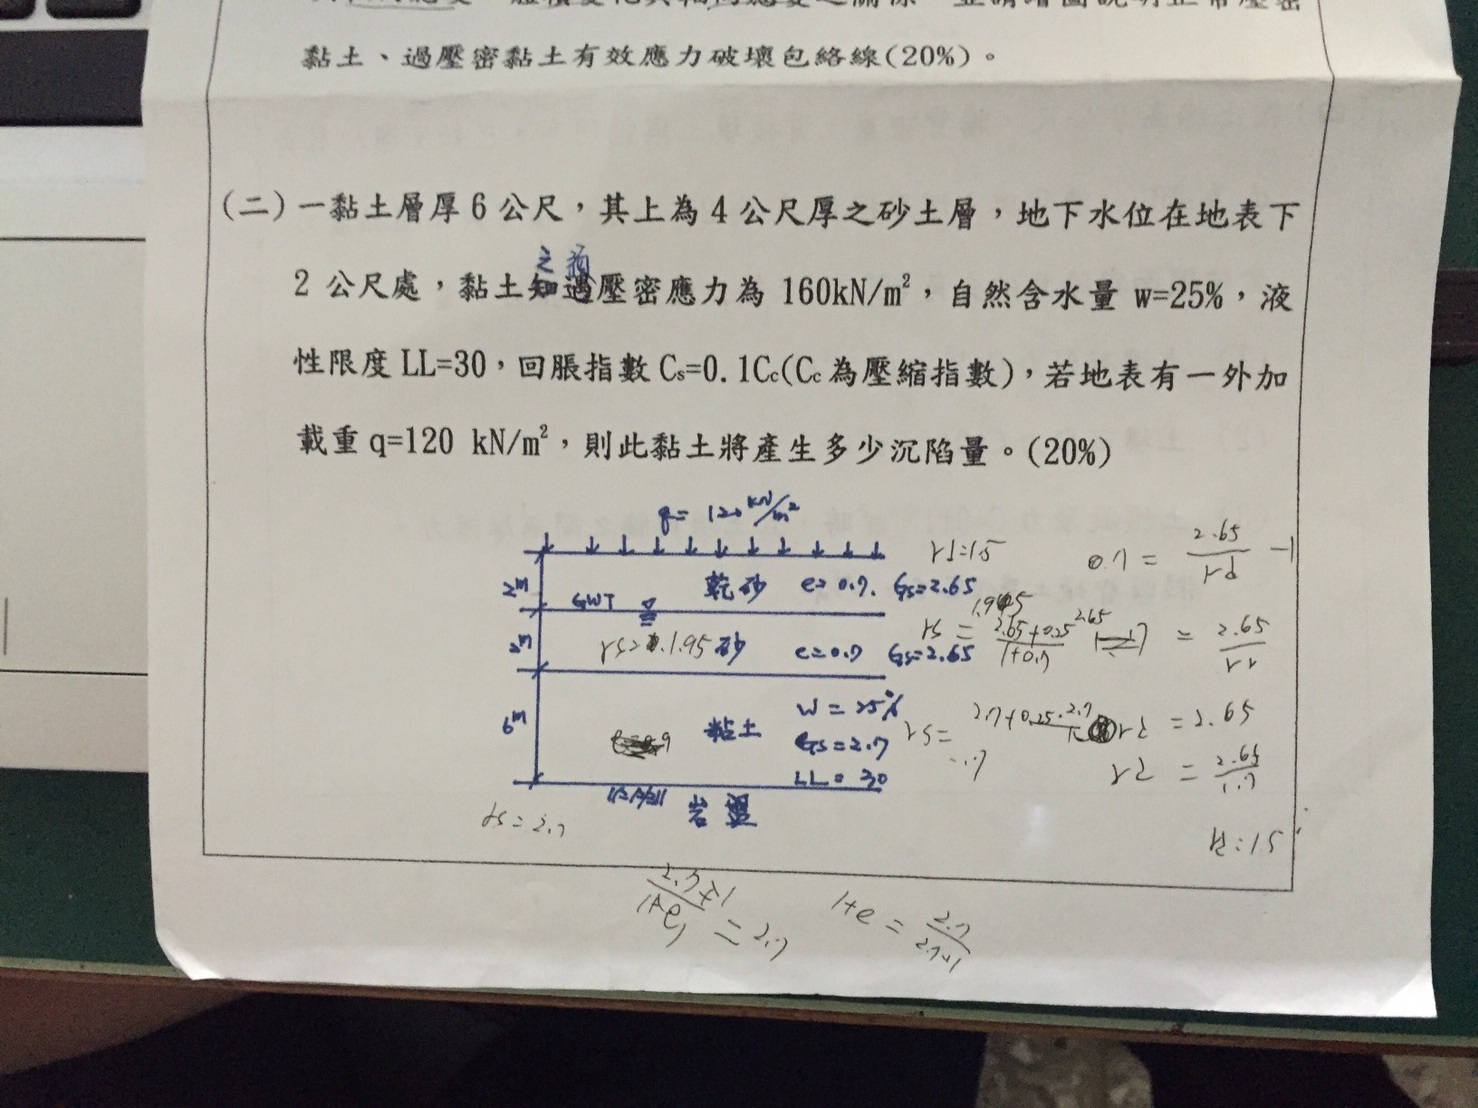 黏土、過壓密黏土有效應力破壞包絡線(20%)。
(二)一黏土層厚6公尺，其上為4公尺厚之砂土層，地下水位在地表下
之預
2公尺處，黏土知過壓密應力為160kN/m²，自然含水量w=25%，液
性限度LL=30，回脹指數Cs=0.1Cc(Cc為壓縮指數)，若地表有一外加
載重q=120 kN/m²，則此黏土將產生多少沉陷量。(20%)
q= 120 kN/m²
2M
乾砂 e=0.7. Gs=2.65
rd=1.5
0.7 = 2.65/rd -1
GWT
2M
rs=1.95 砂 e=0.7 Gs=2.65
rs = 2.65+0.25 2.65/1+0.7
1.7 = 2.65/rd
6M
粘土
W = 25%
Gs=2.7
LL= 30
rs= 2.7+0.25·2.7
rd = 2.65
rd = 2.65/1.7
岩盤
rs=2.7
rd=15
2.7+1/1+e = 2.7
1+e = 2.7/2.7+1